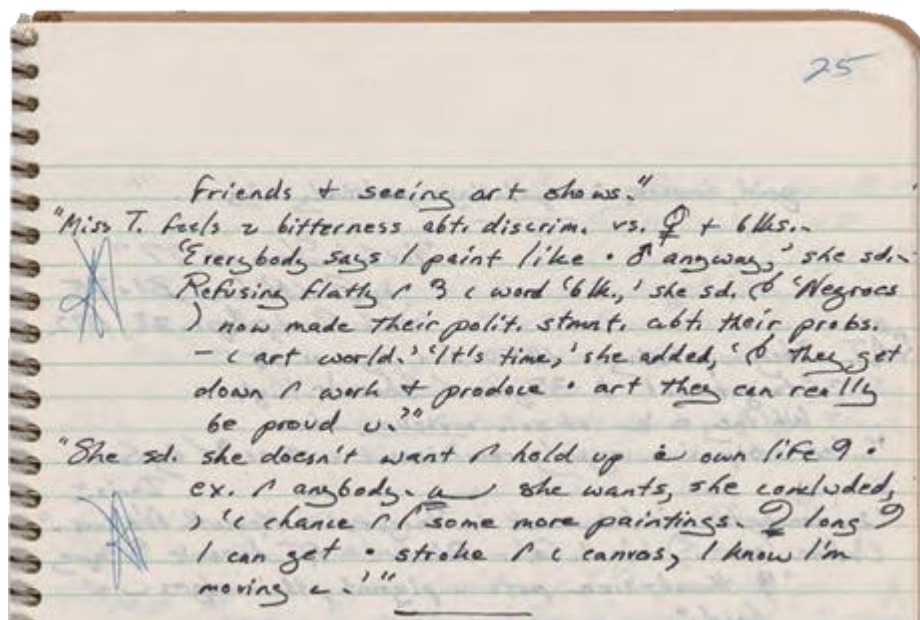 25
Friends + seeing art shows."
"Miss T. feels bitterness abt. discrim. vs. ♀ + blks..
'Everybody says I paint like • ♂ anyway,' she sd..
Refusing flatly word 'blk.,' she sd. 'Negroes
now made their polit. stmnt. abt. their probs.
– art world.' 'It's time,' she added, ' they get
down work + produce • art they can really
be proud .'"
"She sd. she doesn't want hold up own life •
ex. anybody. she wants, she concluded,
' chance some more paintings. long
I can get • stroke canvas, I know I'm
moving .'"